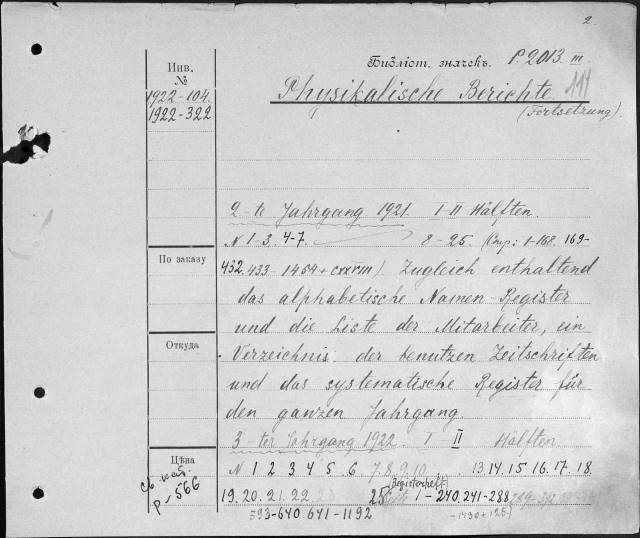 2.
Библіот. значекъ. P. 2013. III.
Инв.
№
1922-104.
1922-322
Physikalische Berichte 114
(Fortsetzung).
2-te Jahrgang 1921. I-II Hälften.
N 1-3. 4-7. 8-25. (Стр.: 1-168. 169-
По заказу
432. 433-1454 + CXXVIII). Zugleich enthaltend
das alphabetische Namen-Register
und die Liste der Mitarbeiter, ein
Откуда
Verzeichnis der benutzen Zeitschriften
und das systematische Register für
den ganzen Jahrgang
3-ter Jahrgang 1922. I II Hälften.
Цѣна
N 1 2 3 4 5 6 7. 8. 9. 10. 13. 14. 15. 16. 17. 18.
Св. кат.
P-566
(Registerheft)
19. 20. 21. 22. 25 1-240. 241-288.
593-640. 641-1192 -1430+125)